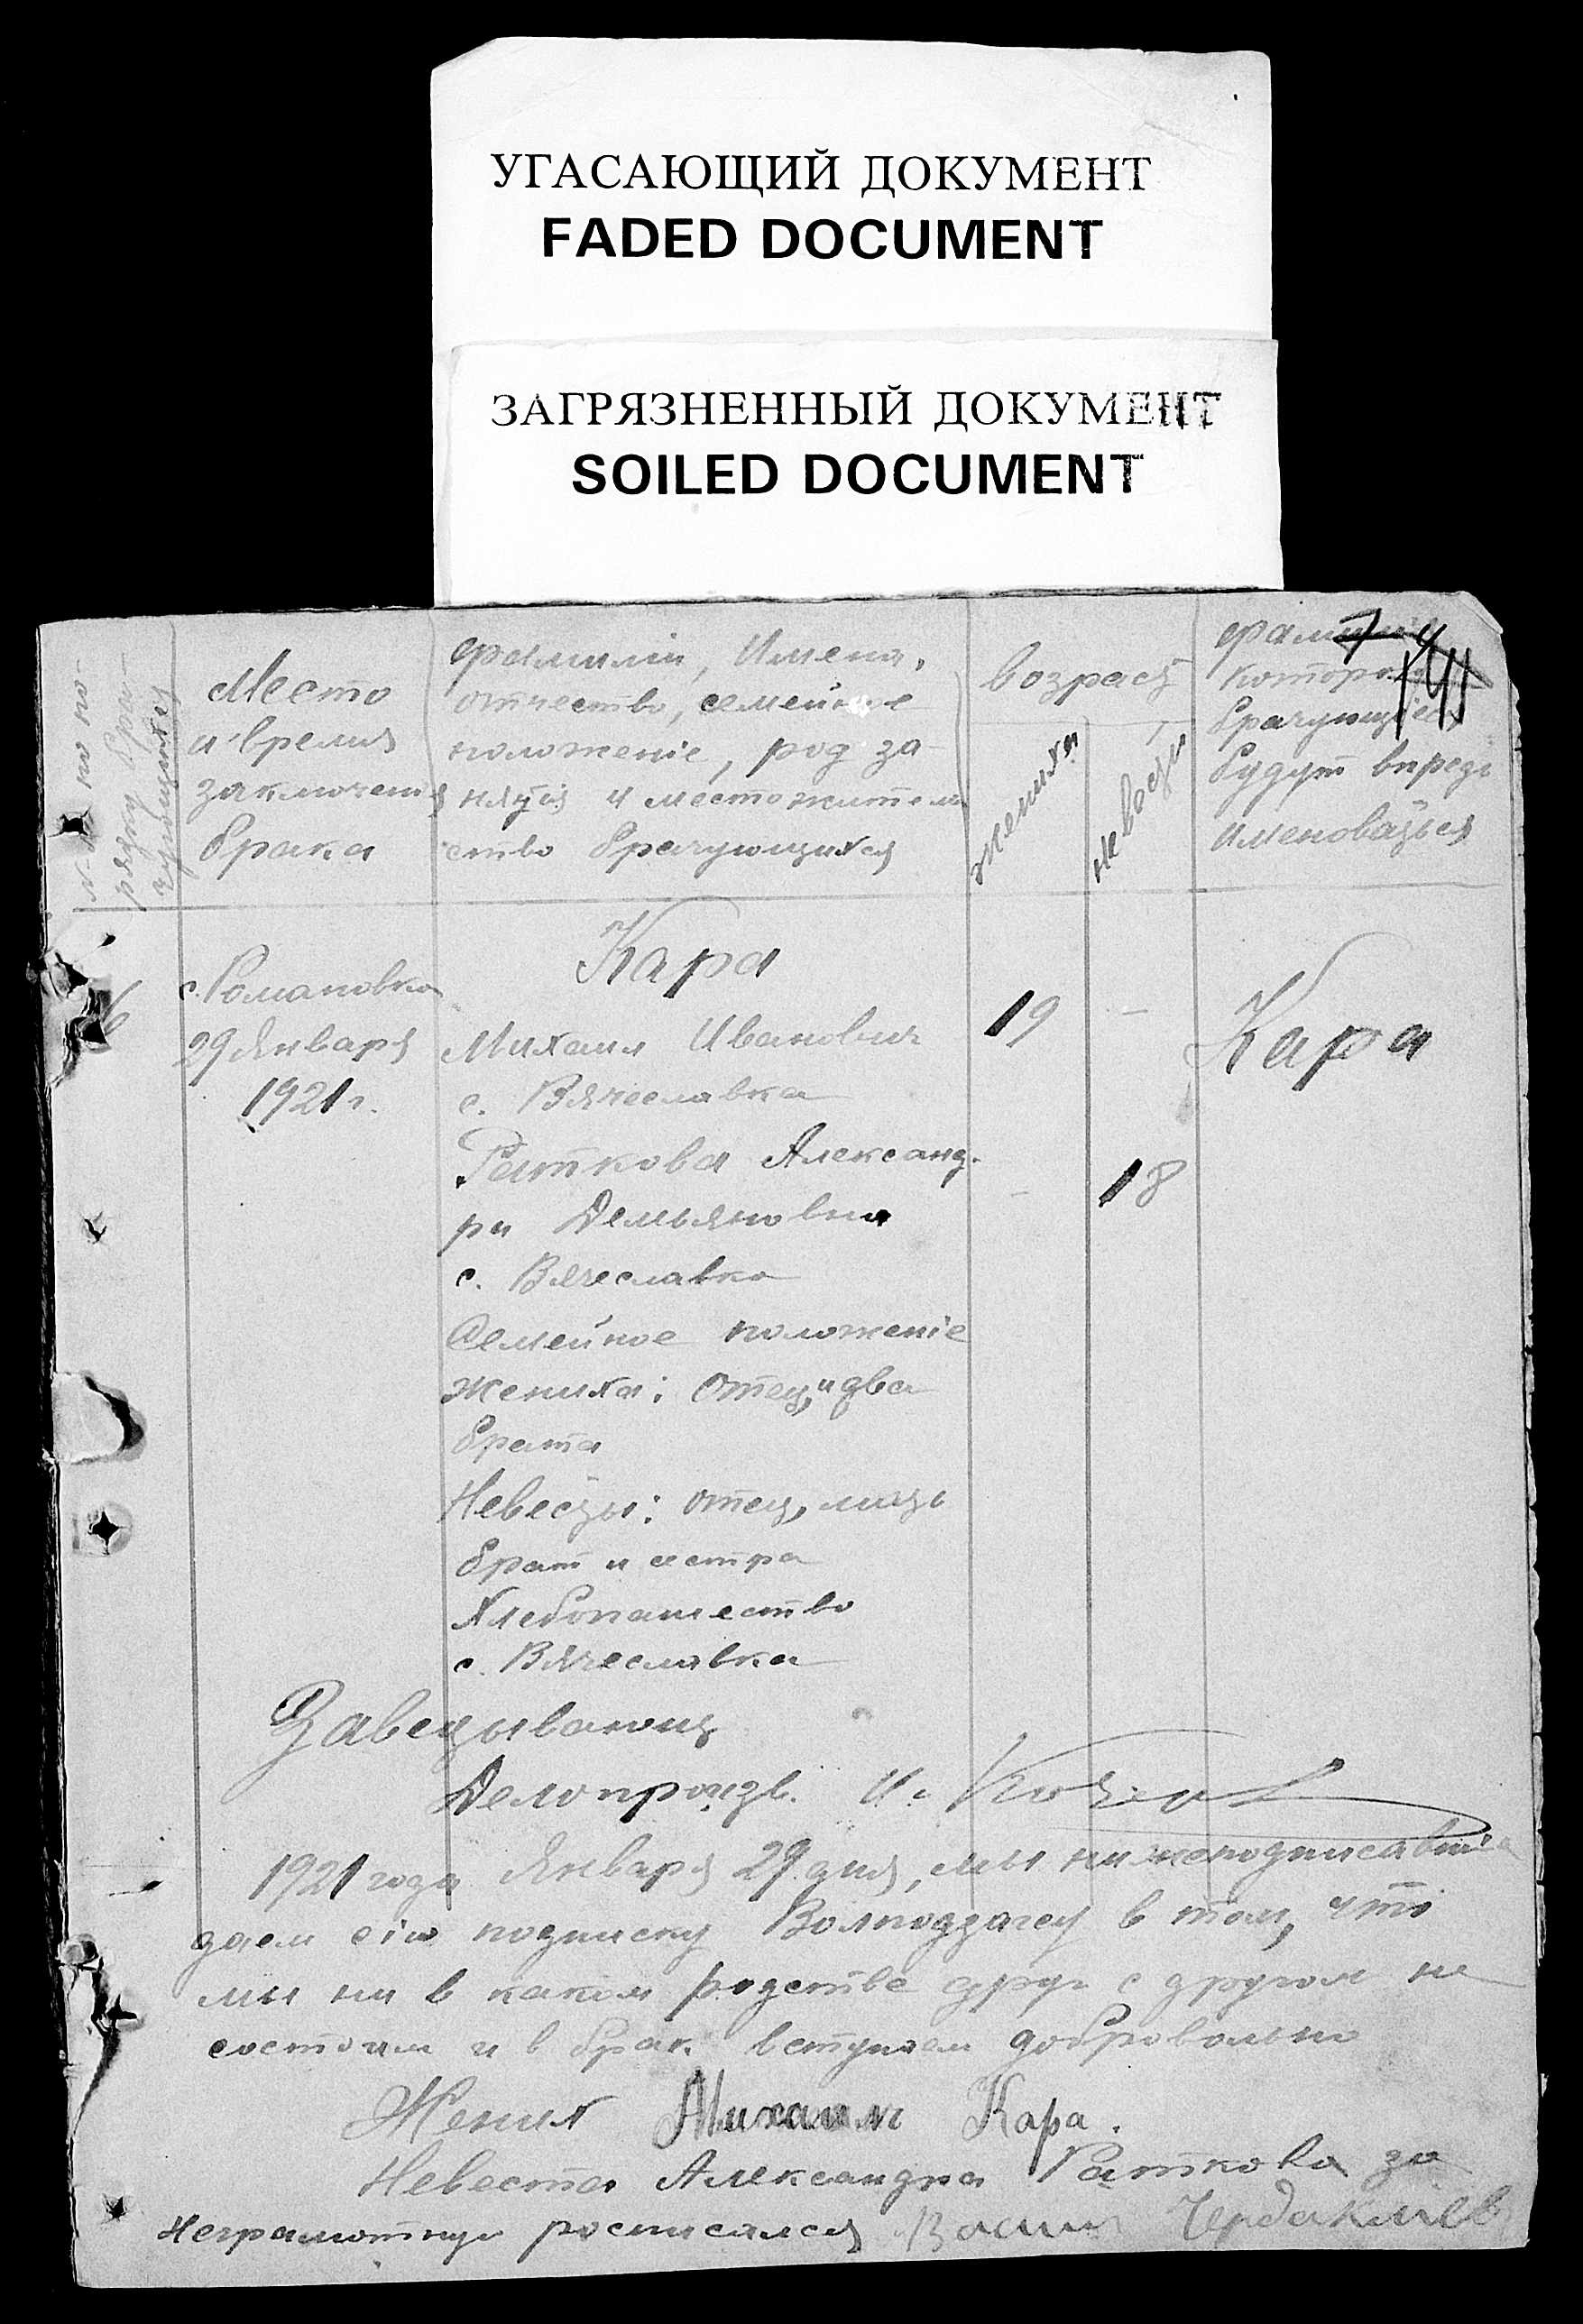 УГАСАЮЩИЙ ДОКУМЕНТ
FADED DOCUMENT
ЗАГРЯЗНЕННЫЙ ДОКУМЕНТ
SOILED DOCUMENT
Место
и время
заключения
брака
фамилии, Имена,
отчество, семейное
положенiе, род за-
нятiя и местожитель
ство брачующихся
возраст
жениха
невесты
брачующiеся
будут впредь
именоваться
с. Романовка
29 Января
1921 г.
Кара
Михаил Иванович
с. Вячеславка
19
-
Кара
Раткова Александ-
ра Демьяновна
с. Вячеславка
-
18
Семейное положенiе
жениха: Отец, и два
брата
Невесты: отец, мать
брат и сестра
Хлебопашество
с. Вячеславка
Заведывающ
Делопроизв. И.
1921 года Января 29 дня, мы нижеподписавшiеся
даем сiю подписку в том, что
мы ни в каком родстве друг с другом не
состоим и в брак вступаем добровольно
Жених Михаил Кара.
Невеста Александра Раткова за
неграмотную росписался Чердаклиев